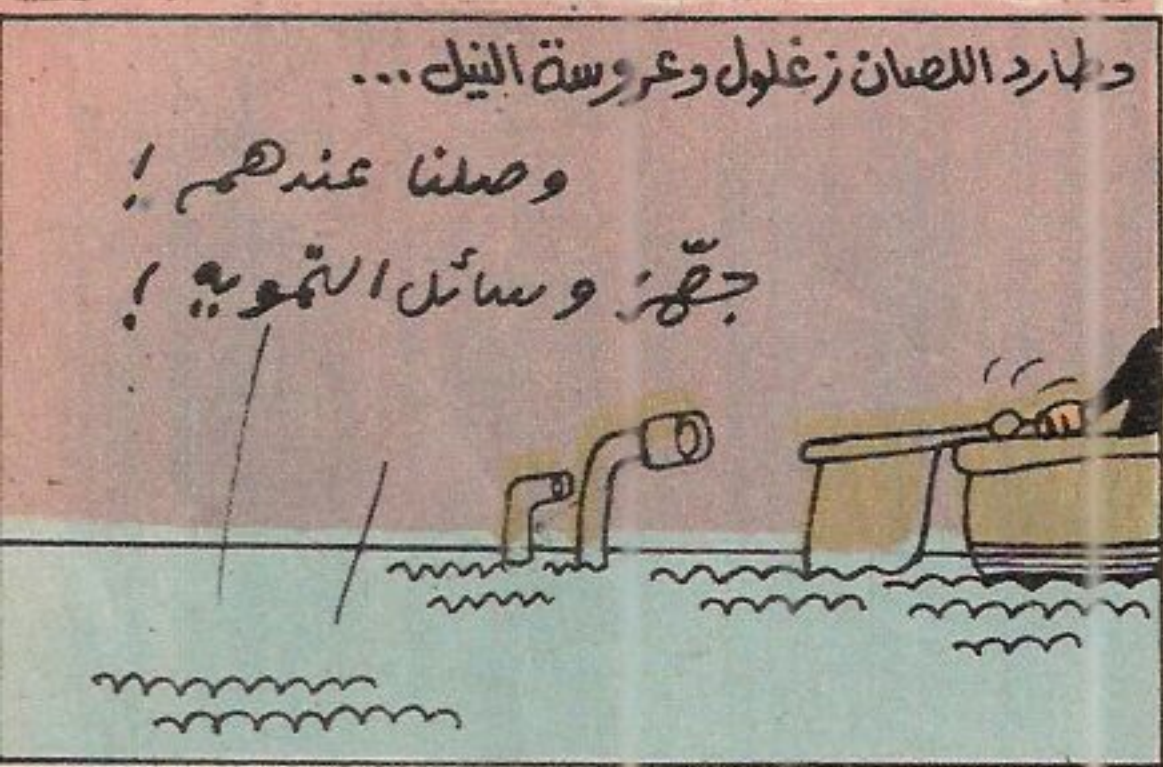 وطارد اللصان زغلول وعروسة النيل...
وصلنا عندهم !
جهّز وسائل التّمويه !